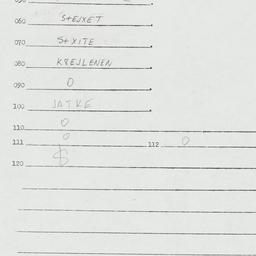 060 STEJXET
070 S+XITE
080 KREJLENEN
090 0
100 JATKE
110 0
111 0 112 0
120